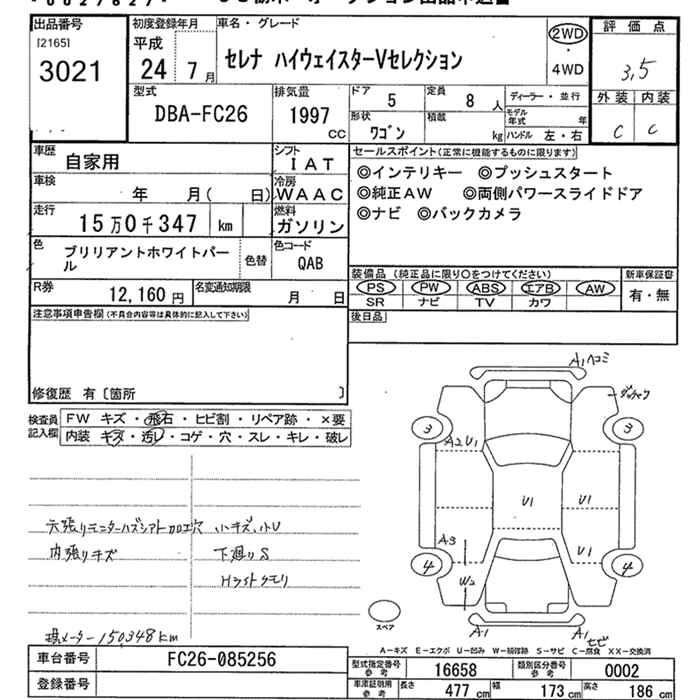 出品番号 初度登録年月 車名・グレード 評価点
[2165]
3021
平成
24年 7月
セレナ ハイウェイスターVセレクション
2WD
・
4WD
3,5
型式 排気量 ドア 定員 ディーラー・並行 外装 内装
DBA-FC26 1997 cc 5 8人
形状 積載 モデル年式 年
ワゴン kg ハンドル 左・右 C C
車歴 自家用 シフト IAT
セールスポイント(正常に機能するものに限ります)
車検 年 月( 日) 冷房 WAAC
◎インテリキー ◎プッシュスタート
◎純正AW ◎両側パワースライドドア
◎ナビ ◎バックカメラ
走行 15万0千347 km 燃料 ガソリン
色 ブリリアントホワイトパール 色替 色コード QAB
装備品 (純正品に限り○をつけてください) 新車保証書
PS PW ABS エアB AW 有・無
SR ナビ TV カワ
R券 12,160円 名変通知期限 月 日
注意事項申告欄(不具合内容等は具体的に記入して下さい)
後日品
修復歴 有〔箇所 〕
検査員記入欄
FW キズ・飛石・ヒビ割・リペア跡・×要
内装 キズ・汚レ・コゲ・穴・スレ・キレ・破レ
A1ヘコミ
3 3
A2U1
U1 U1
A3 U1
4 4
W2
スペア
A1 A1
サビ
天張りモニターハズシアト加工穴 小キズ,小U
内張りキズ 下廻りS
Hライトクモリ
現メーター150348km
A−キズ E−エクボ U−凹み W−補修跡 S−サビ C−腐食 XX−交換済
車台番号 FC26-085256
登録番号
型式指定番号参考 16658 類別区分番号参考 0002
車庫証明用参考 長さ 477cm 幅 173cm 高さ 186cm